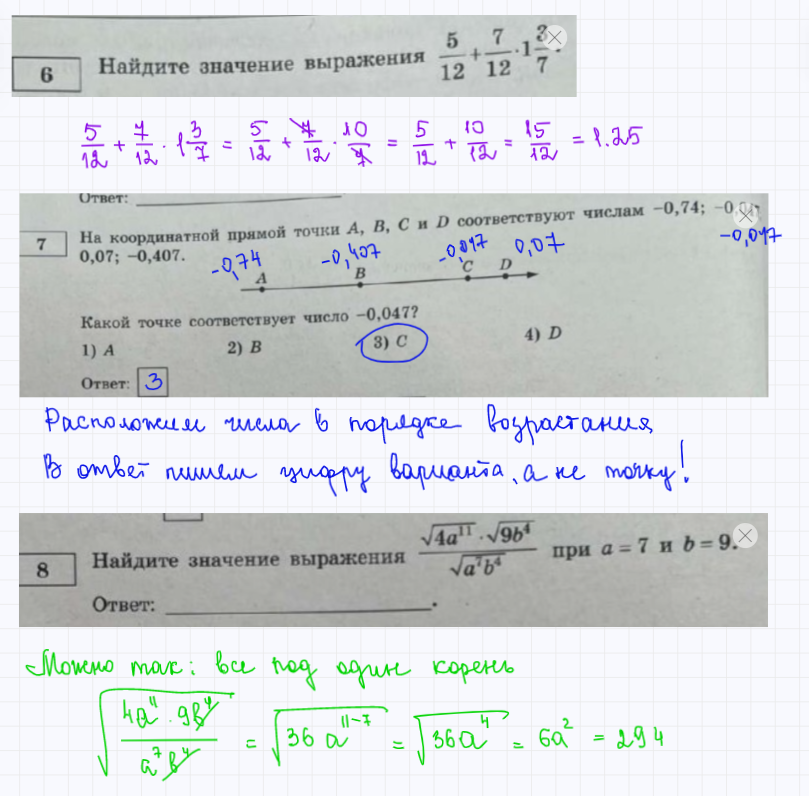 6 Найдите значение выражения 5/12 + 7/12 · 1 3/7.
5/12 + 7/12 · 1 3/7 = 5/12 + 7/12 · 10/7 = 5/12 + 10/12 = 15/12 = 1.25
Ответ:
7 На координатной прямой точки A, B, C и D соответствуют числам −0,74;
-0,047
0,07; −0,407.
-0,74 -0,407 -0,047 0,07
A B C D
Какой точке соответствует число −0,047?
1) A 2) B 3) C 4) D
Ответ: 3
Расположим числа в порядке возрастания
В ответ пишем цифру варианта, а не точку!
8 Найдите значение выражения √4a¹¹ · √9b⁴ / √a⁷b⁴ при a = 7 и b = 9.
Ответ: .
Можно так: все под один корень
√(4a¹¹ · 9b⁴ / a⁷b⁴) = √36a¹¹⁻⁷ = √36a⁴ = 6a² = 294